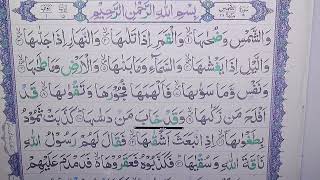 بِسْمِ اللهِ الرَّحْمٰنِ الرَّحِيْمِ
وَالشَّمْسِ وَضُحٰىهَا ۙ وَالْقَمَرِ اِذَا تَلٰىهَا ۙ وَالنَّهَارِ اِذَا جَلّٰىهَا ۙ
وَالَّيْلِ اِذَا يَغْشٰىهَا ۙ وَالسَّمَآءِ وَمَا بَنٰىهَا ۙ وَالْاَرْضِ وَمَا طَحٰىهَا ۙ
وَنَفْسٍ وَّمَا سَوّٰىهَا ۙ فَاَلْهَمَهَا فُجُوْرَهَا وَتَقْوٰىهَا ۙ قَدْ
اَفْلَحَ مَنْ زَكّٰىهَا ۙ وَقَدْ خَابَ مَنْ دَسّٰىهَا ۙ كَذَّبَتْ ثَمُوْدُ
بِطَغْوٰىهَا ۙ اِذِ انْۢبَعَثَ اَشْقٰىهَا ۙ فَقَالَ لَهُمْ رَسُوْلُ اللهِ
نَاقَةَ اللهِ وَسُقْيٰهَا ۙ فَكَذَّبُوْهُ فَعَقَرُوْهَا ۙ فَدَمْدَمَ عَلَيْهِمْ